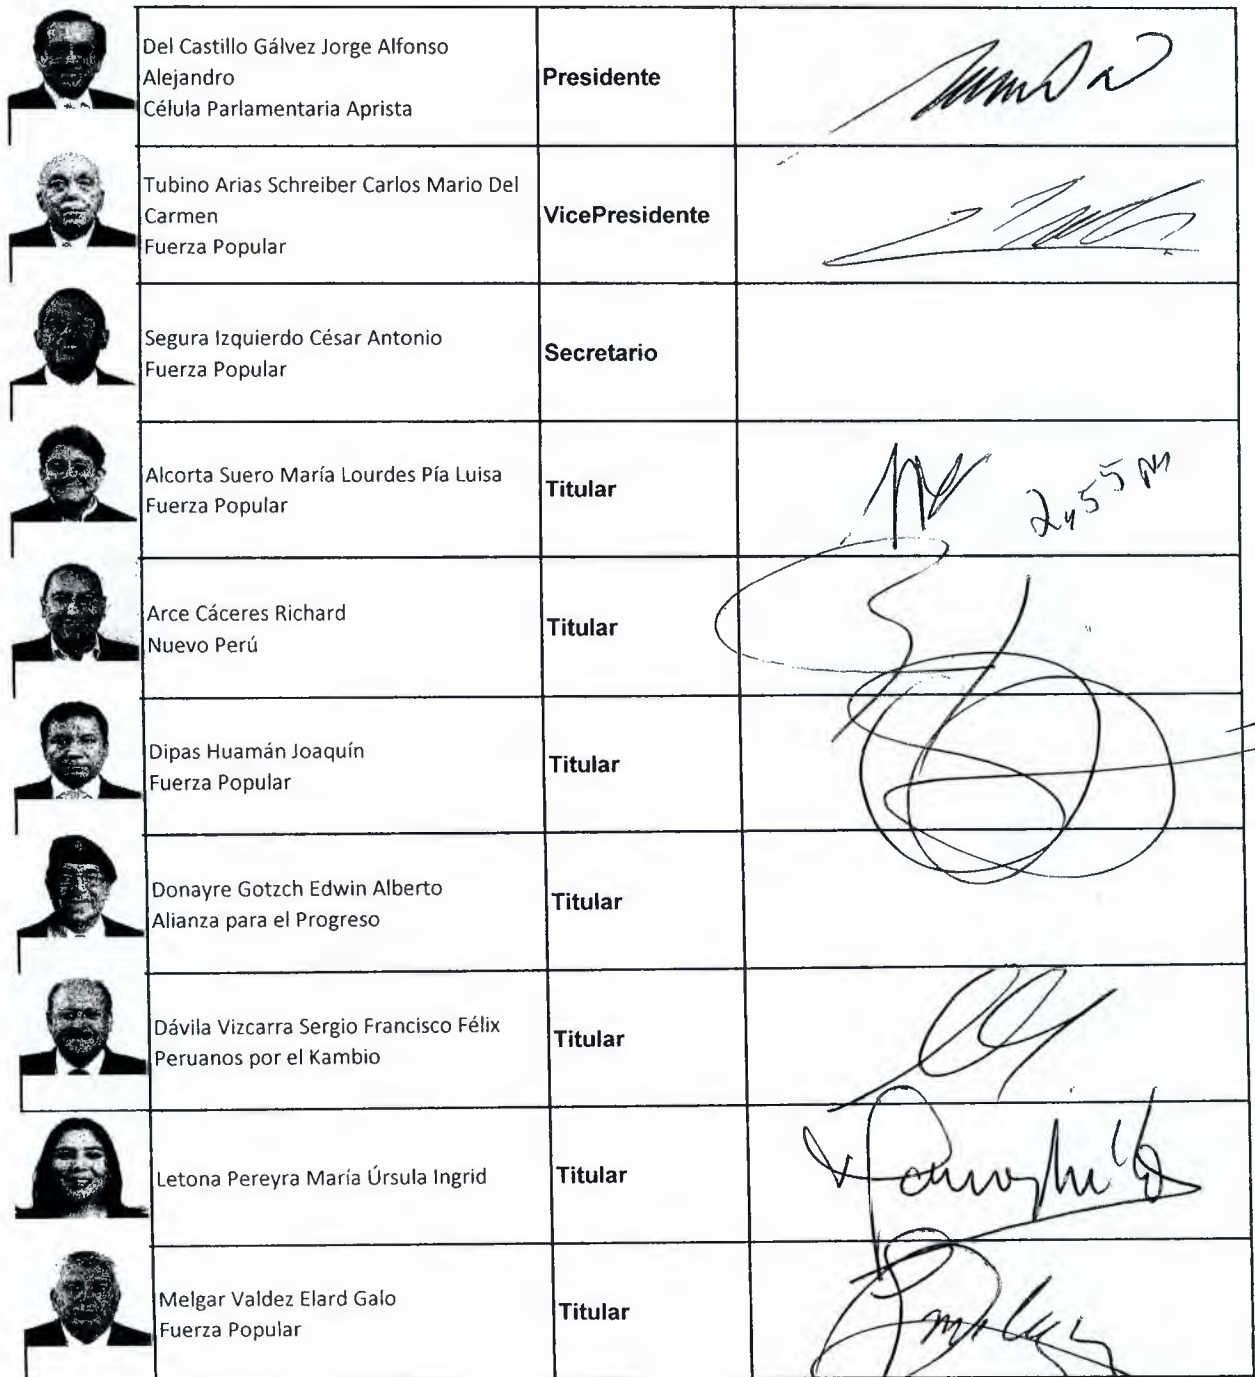 Del Castillo Gálvez Jorge Alfonso
Alejandro
Célula Parlamentaria Aprista
Presidente
Tubino Arias Schreiber Carlos Mario Del
Carmen
Fuerza Popular
VicePresidente
Segura Izquierdo César Antonio
Fuerza Popular
Secretario
Alcorta Suero María Lourdes Pía Luisa
Fuerza Popular
Titular
Arce Cáceres Richard
Nuevo Perú
Titular
Dipas Huamán Joaquín
Fuerza Popular
Titular
Donayre Gotzch Edwin Alberto
Alianza para el Progreso
Titular
Dávila Vizcarra Sergio Francisco Félix
Peruanos por el Kambio
Titular
Letona Pereyra María Úrsula Ingrid
Titular
Melgar Valdez Elard Galo
Fuerza Popular
Titular